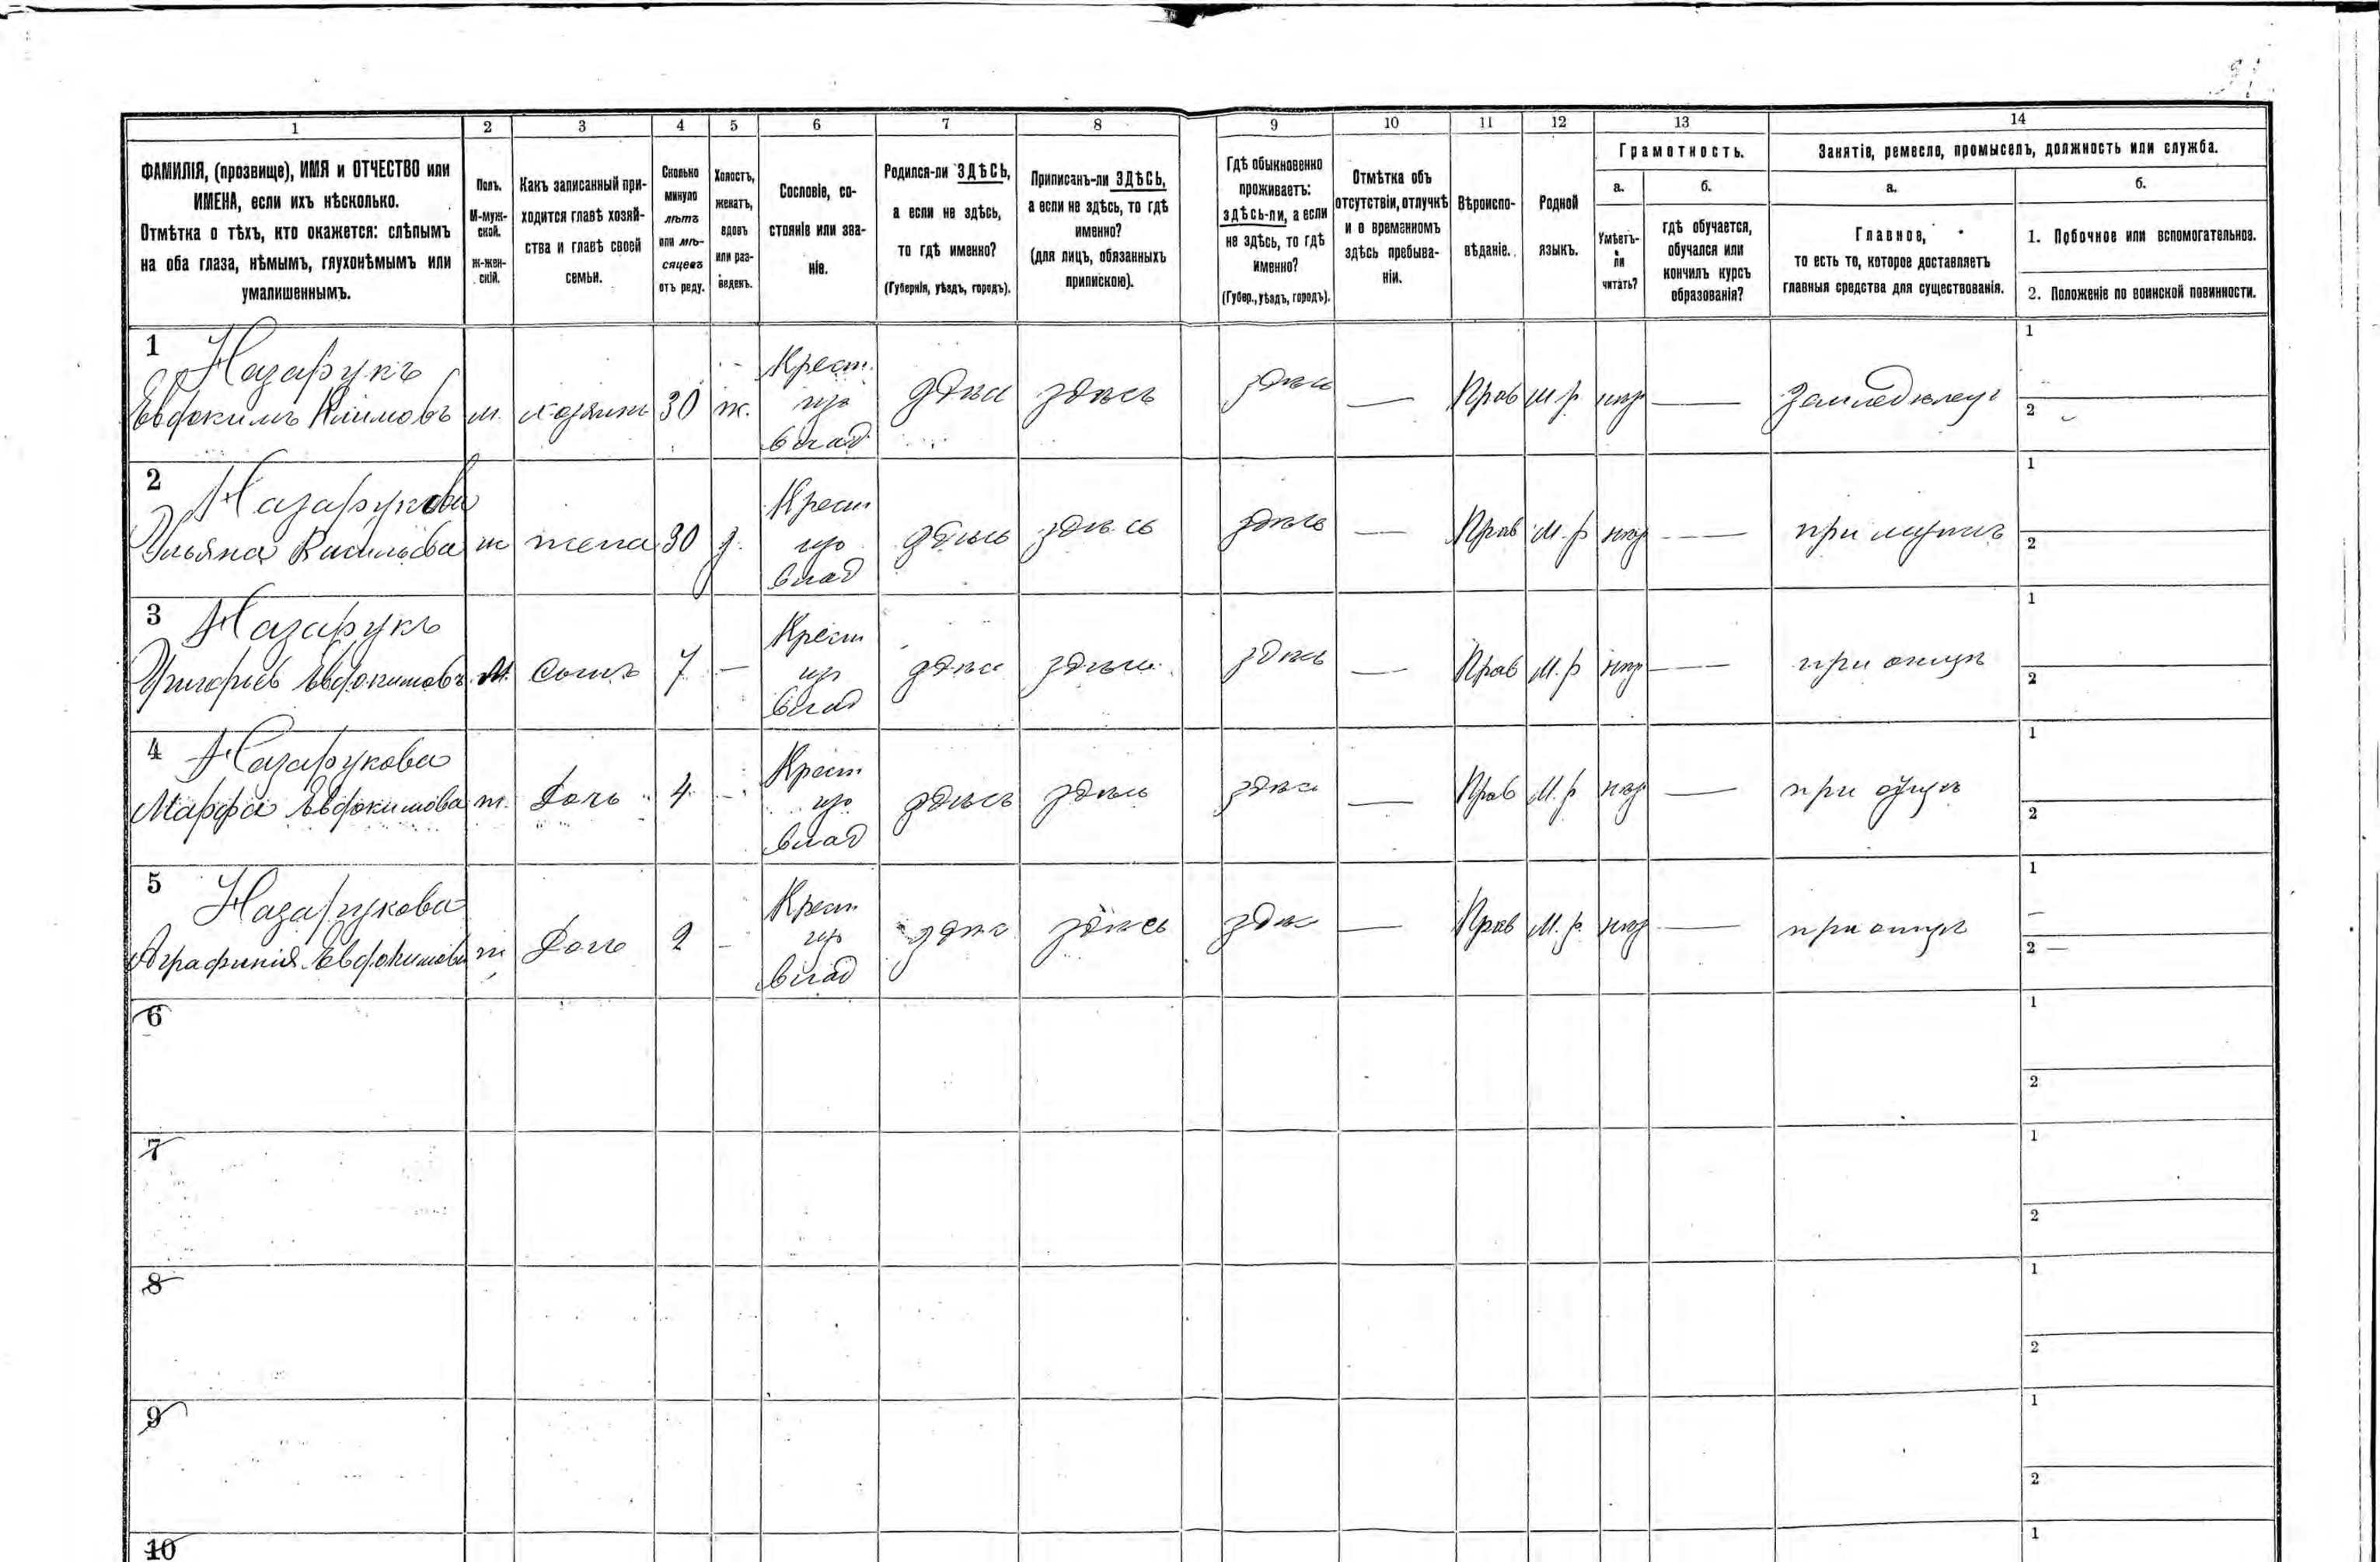 1 2 3 4 5 6 7 8 9 10 11 12 13 14
ФАМИЛІЯ, (прозвище), ИМЯ и ОТЧЕСТВО или
ИМЕНА, если ихъ нѣсколько.
Отмѣтка о тѣхъ, кто окажется: слѣпымъ
на оба глаза, нѣмымъ, глухонѣмымъ или
умалишеннымъ.
Полъ.
М-муж-
ской.
Ж-жен-
скій.
Какъ записанный при-
ходится главѣ хозяй-
ства и главѣ своей
семьи.
Сколько
минуло
лѣтъ
или мѣ-
сяцевъ
отъ роду.
Холостъ,
женатъ,
вдовъ
или раз-
веденъ.
Сословіе, со-
стояніе или зва-
ніе.
Родился-ли ЗДѢСЬ,
а если не здѣсь,
то гдѣ именно?
(Губернія, уѣздъ, городъ).
Приписанъ-ли ЗДѢСЬ,
а если не здѣсь, то гдѣ
именно?
(для лицъ, обязанныхъ
припискою).
Гдѣ обыкновенно
проживаетъ:
здѣсь-ли, а если
не здѣсь, то гдѣ
именно?
(Губер., уѣздъ, городъ).
Отмѣтка объ
отсутствіи, отлучкѣ
и о временномъ
здѣсь пребыва-
ніи.
Вѣроиспо-
вѣданіе.
Родной
языкъ.
Грамотность.
а.
Умѣетъ-
ли
читать?
б.
гдѣ обучается,
обучался или
кончилъ курсъ
образованія?
Занятіе, ремесло, промыселъ, должность или служба.
а.
Главное,
то есть то, которое доставляетъ
главныя средства для существованія.
б.
1. Побочное или вспомогательное.
2. Положеніе по воинской повинности.
1 Назарукъ
Евдокимъ Климовъ м. хозяинъ 30 ж. Крест. здѣсь здѣсь здѣсь — Прав М.р — 1
влад 2
2 Назарукова
Ульяна Васильева ж жена 30 Крест здѣсь здѣсь здѣсь — Прав М.р — при мужѣ 1
влад 2
3 Назарукъ
Григоріев Евдокимовъ м. сынъ 7 — Крест здѣсь здѣсь здѣсь — Прав М.р — при отцѣ 1
влад 2
4 Назарукова
Марфа Евдокимова ж. дочь 4 — Крест здѣсь здѣсь здѣсь — Прав М.р — при отцѣ 1
влад 2
5 Назарукова
Аграфинія Евдокимова ж дочь 2 — Крест здѣсь здѣсь здѣсь — Прав М.р. — при отцѣ 1 —
влад 2 —
6 1
2
7 1
2
8 1
2
9 1
2
10 1